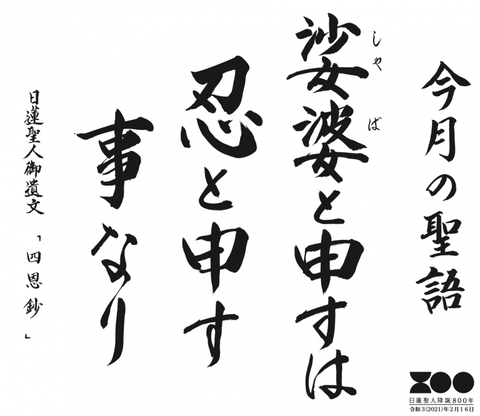 今月の聖語
しゃば
娑婆と申すは
忍と申す
事なり
日蓮聖人御遺文「四恩鈔」
800
日蓮聖人降誕800年
令和3(2021)年2月16日